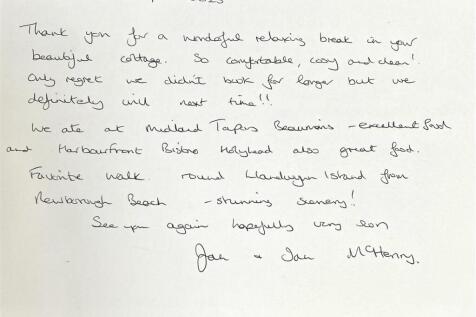 2023
Thank you for a wonderful relaxing break in your
beautiful cottage. So comfortable, cosy and clean!
Only regret we didn't book for longer but we
definitely will next time!!
We ate at Midland Tapas Beaumaris - excellent food
and Harbourfront Bistro Holyhead also great food.
Favorite walk. round Llanddwyn Island from
Newborough Beach - stunning scenery!
See you again hopefully very soon
& Ian McHenry.